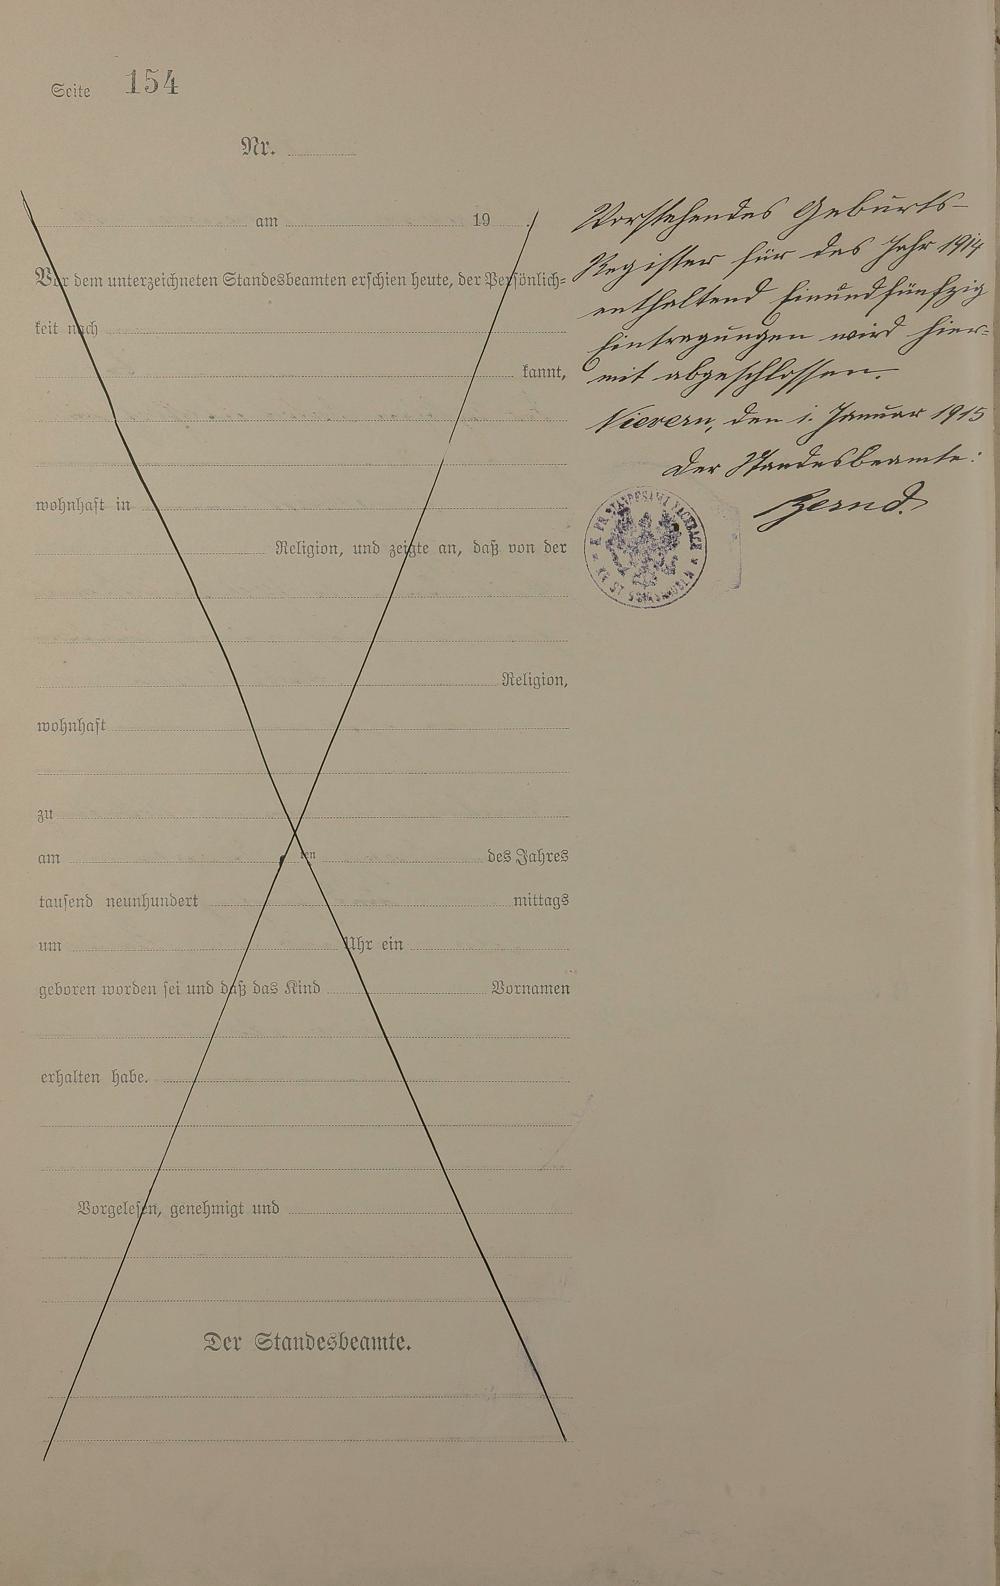 Seite 154
Nr.
am 19
Vor dem unterzeichneten Standesbeamten erschien heute, der Persönlich=
keit nach
kannt,
wohnhaft in
Religion, und zeigte an, daß von der
Religion,
wohnhaft
zu
am ten des Jahres
tausend neunhundert mittags
um Uhr ein
geboren worden sei und daß das Kind Vornamen
erhalten habe.
Vorgelesen, genehmigt und
Der Standesbeamte.
Vorstehendes Geburts-
Register für das Jahr 1914
enthaltend Einundfünfzig
Eintragungen wird hier=
mit abgeschlossen.
Nievern, den 1. Januar 1915
Der Standesbeamte:
Bernd.
STANDESAMT FACHBACH